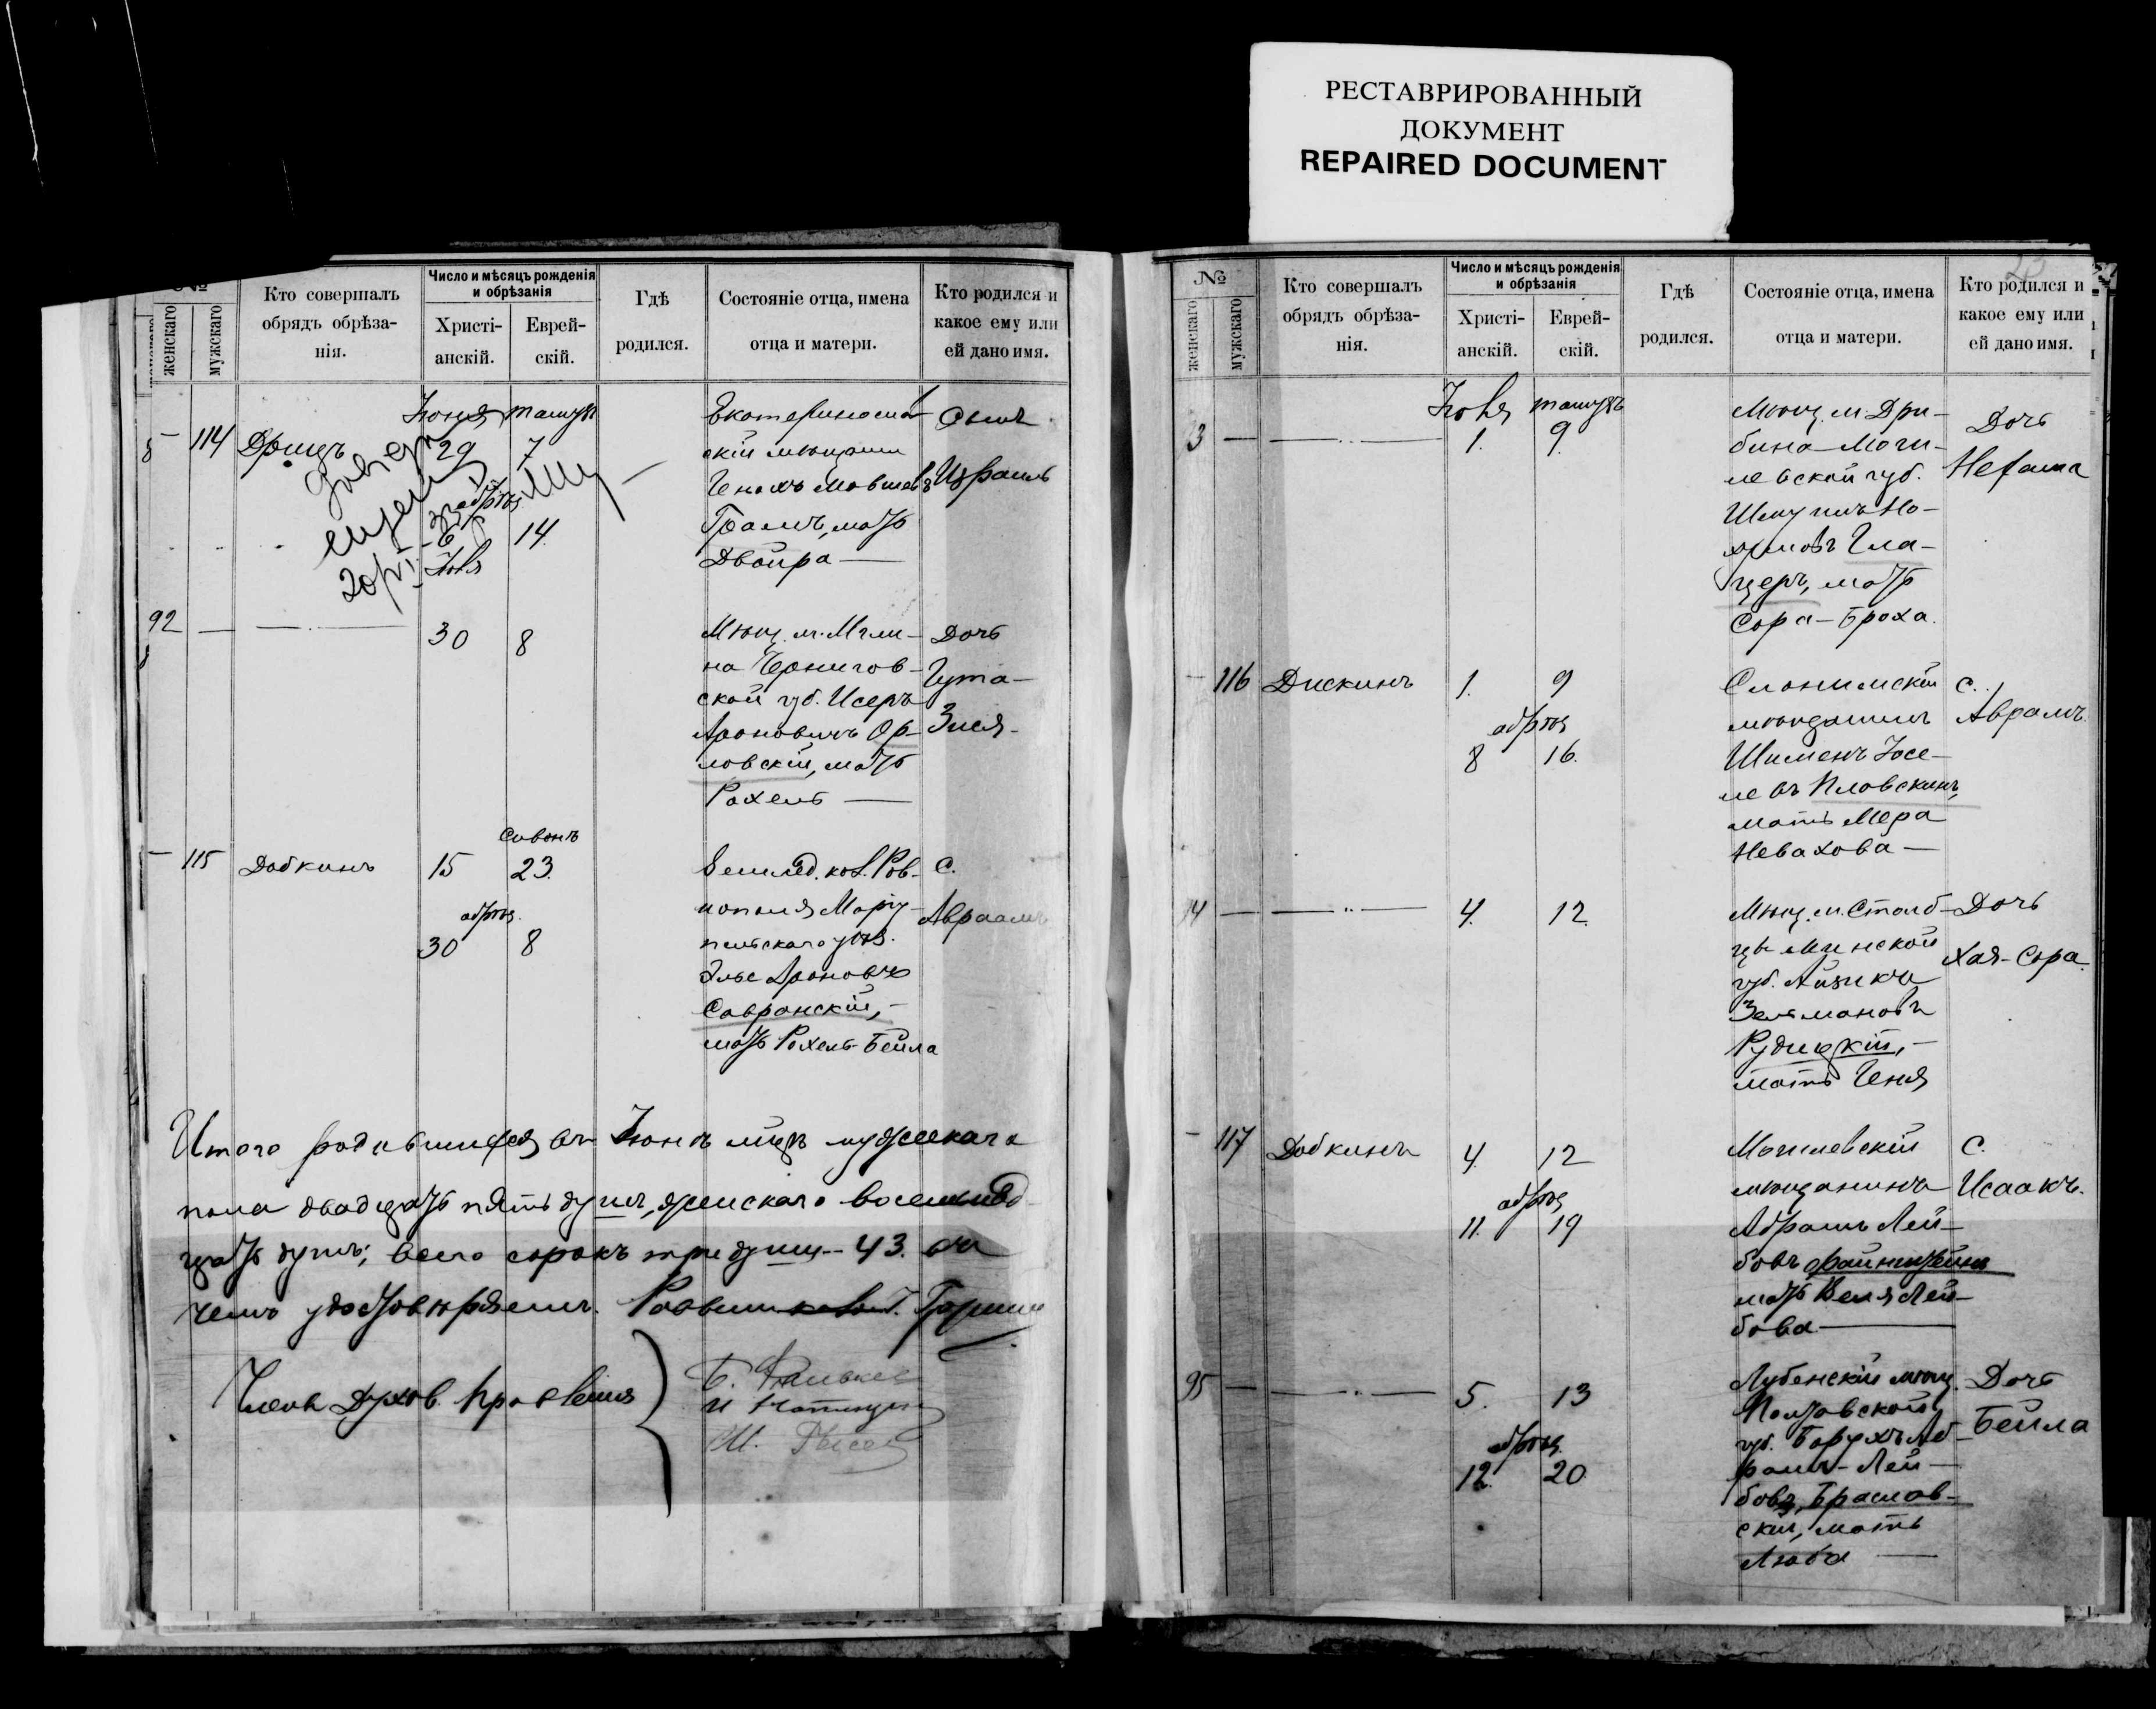 РЕСТАВРИРОВАННЫЙ
ДОКУМЕНТ
REPAIRED DOCUMENT
№
женскаго
мужскаго
Кто совершалъ
обрядъ обрѣза-
нія.
Число и мѣсяцъ рожденія
и обрѣзанія
Христі-
анскій.
Еврей-
скій.
Гдѣ
родился.
Состояніе отца, имена
отца и матери.
Кто родился и
какое ему или
ей дано имя.
114
Іюня
29
7
6
Іюля
14.
скій мѣщанин
мать
Двойра —
Сынъ
Израиль
92
—
30
8
Мѣщ. м. Мгли-
на Чернигов-
ской губ. Исеръ
Ароновичъ Ор-
ловскій, мать
Рахель —
Дочь
Гута-
Зися-
—
115
Добкинъ
15
Сивонъ
23.
обрѣз.
30
8
Роб-
нополя Маріу-
польскаго уѣз.
Эліе Ароновъ
Савранскій, -
мать Рахель-Бейла
С.
Авраамъ
Итого родившихся въ Іюнѣ мцѣ мужскаго
пола двадцать пять душъ, женскаго восемнад-
цать душъ; всего сорокъ три души - 43. въ
чемъ удостовѣряемъ. Раввин
Члены Духов. Правленія
№
женскаго
мужскаго
Кто совершалъ
обрядъ обрѣза-
нія.
Число и мѣсяцъ рожденія
и обрѣзанія
Христі-
анскій.
Еврей-
скій.
Гдѣ
родился.
Состояніе отца, имена
отца и матери.
Кто родился и
какое ему или
ей дано имя.
23
3
—
Іюля
1.
9.
Мѣщ. м. Дри-
бина Моги-
левской губ.
мать
Сора-Броха.
Дочь
Нехама
116
Дискинъ
1.
9
обрѣз
8
16.
Слонимскій
мѣщанинъ
Шименъ Іосе-
левъ Иловскинъ,
мать Мера
Невахова —
С.
Аврамъ.
94
—
4.
12.
Мѣщ. м. Столб-
цы Минской
губ. Айзикъ
Зельмановъ
Рудицкій, -
мать Геня
Дочь
Хая-Сора.
—
117
Добкинъ
4.
12
обрѣз
11.
19
Могилевскій
мѣщанинъ
Абрамъ Лей-
бовъ
мать Веля Лей-
бова —
С.
Исаакъ.
95
—
5.
13
обрѣз.
12.
20.
Лубенскій мѣщ.
Полтавской
губ. Борухъ Аб-
рамъ-Лей-
бовъ Браслав-
скій, мать
Люба —
Дочь
Бейла